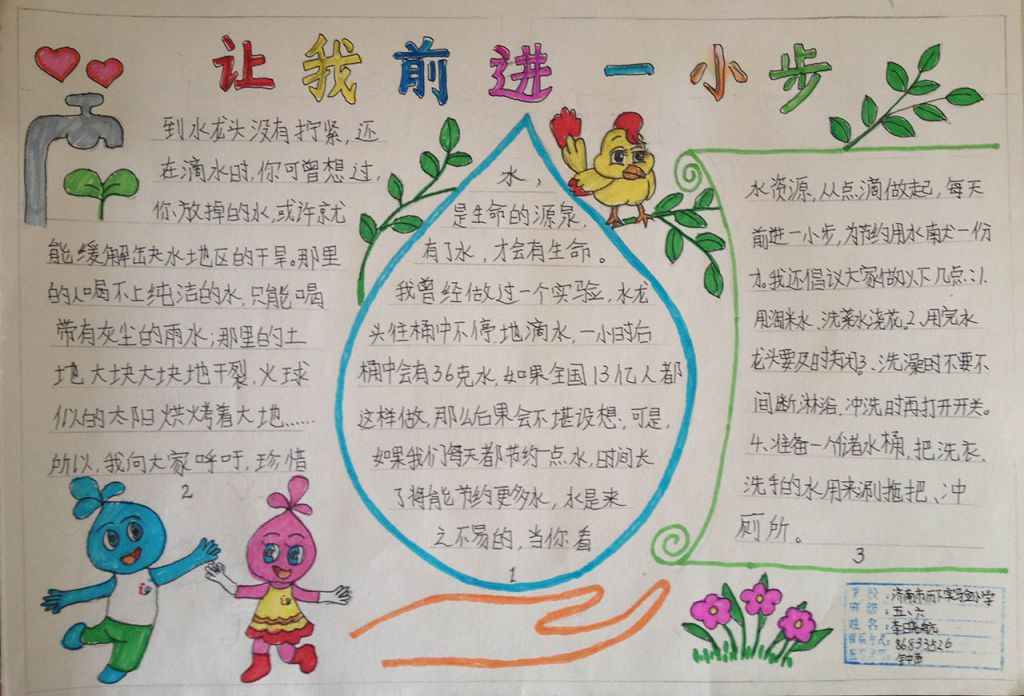 让我前进一小步
水,
是生命的源泉,
有了水,才会有生命。
我曾经做过一个实验,水龙
头往桶中不停地滴水,一小时后
桶中会有36克水,如果全国13亿人都
这样做,那么后果会不堪设想,可是,
如果我们每天都节约一点水,时间长
了将能节约更多水,水是来
之不易的,当你看
1
到水龙头没有拧紧,还
在滴水时,你可曾想过,
你放掉的水,或许就
能缓解缺水地区的干旱。那里
的人喝不上纯洁的水,只能喝
带有灰尘的雨水;那里的土
地大块大块地干裂,火球
似的太阳烘烤着大地……
所以,我向大家呼吁,珍惜
2
水资源,从点滴做起,每天
前进一小步,为节约用水献一份
力。我还倡议大家做以下几点:1.
用淘米水、洗菜水浇花。2、用完水
龙头要及时关闭。3、洗澡时不要不
间断淋浴,冲洗时再打开开关。
4.准备一个储水桶,把洗衣、
洗手的水用来涮拖把、冲
厕所。
3
学校:济南市历下实验小学
班级:五、六
姓名:
联系方式:86833526